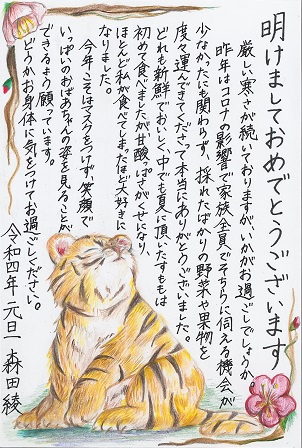 明けましておめでとうございます
厳しい寒さが続いておりますがいかがお過ごしでしょうか。
昨年はコロナの影響で家族全員でそちらに伺える機会が
少なかったにも関わらず、採れたばかりの野菜や果物を
度々運んできてくださって本当にありがとうございました。
どれも新鮮でおいしく、中でも夏に頂いたすももは
初めて食べましたが甘酸っぱさがくせになり、
ほとんど私が食べてしまったほど大好きに
なりました。
今年こそはマスクをつけず、笑顔で
いっぱいのおばあちゃんの姿を見ることが
できるよう願っています。
どうかお身体に気をつけてお過ごしください。
令和四年 元旦 森田綾